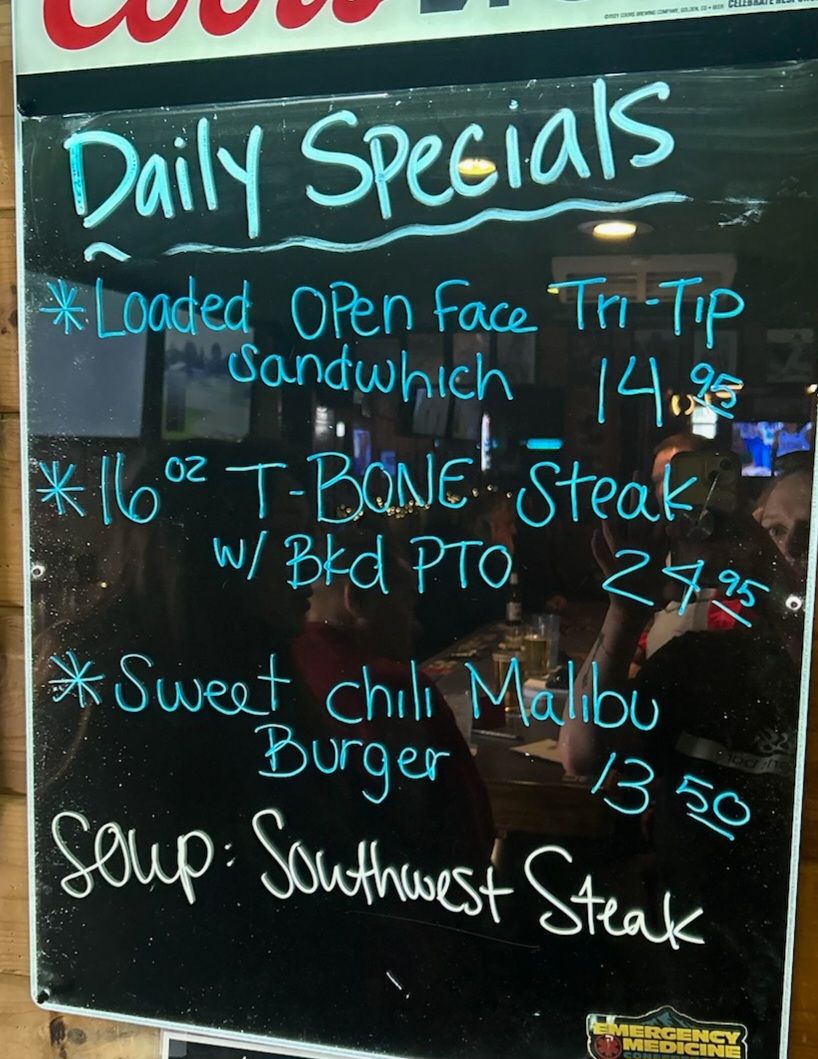 Coors
©2021 COORS BREWING COMPANY, GOLDEN, CO • BEER
Daily Specials
*Loaded Open Face Tri-Tip
Sandwhich 14 95
*16 oz T-BONE Steak
w/ Bkd PTO 24 95
*Sweet chili Malibu
Burger 13 50
Soup: Southwest Steak
EMERGENCY
MEDICINE